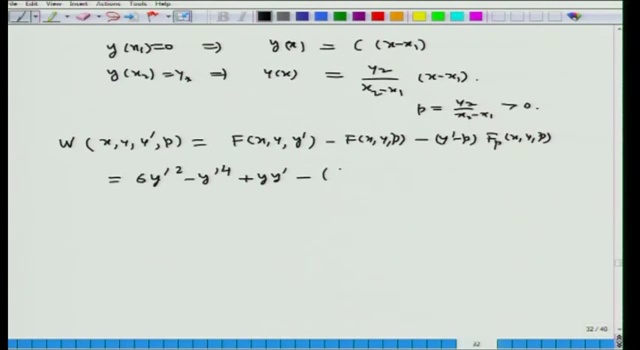 File Edit View Insert Actions Tools Help
y(x₁)=0 ⇒ y(x) = C (x-x₁)
y(x₂) = y₂ ⇒ y(x) = y₂/(x₂-x₁) (x-x₁).
p = y₂/(x₂-x₁) > 0.
W (x, y, y', p) = F(x, y, y') - F(x, y, p) - (y'-p) Fₚ(x, y, p)
= 6y'² - y'⁴ + yy' - (
32 / 40
32